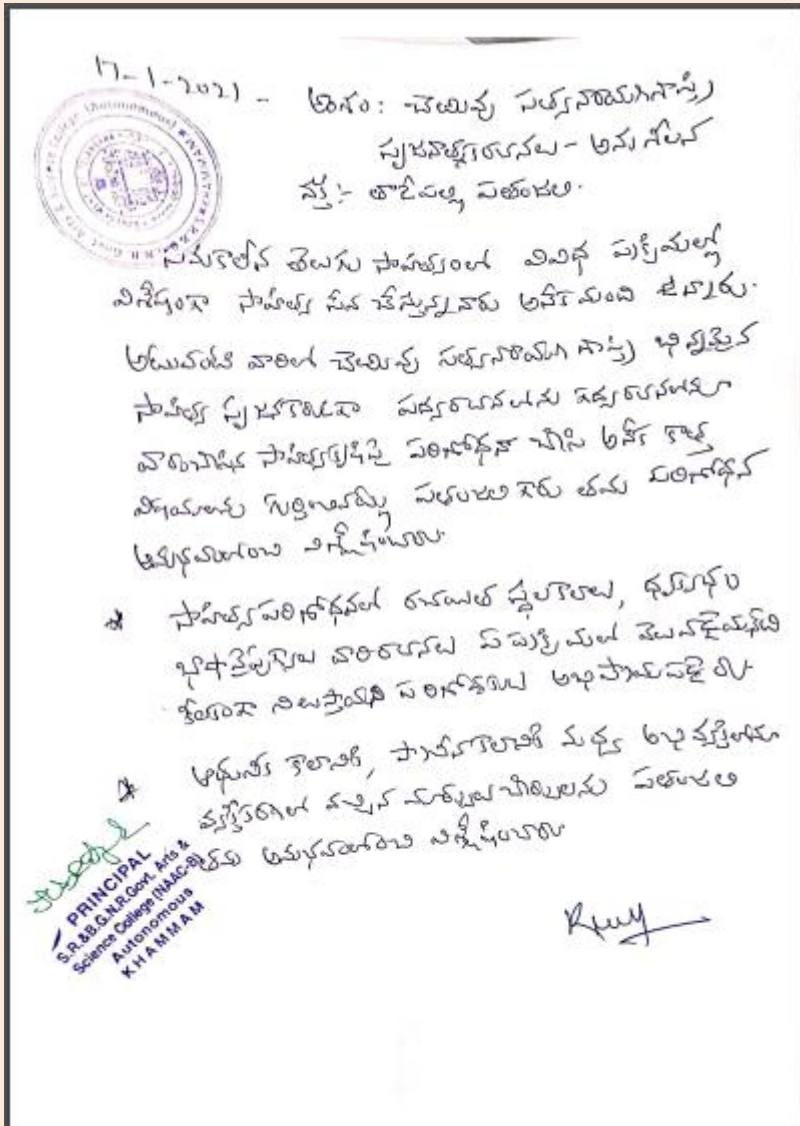 17-1-2021 - అంశం: చెయివు సత్యనారాయణశాస్త్రి
సృజనాత్మకరచనలు - అనుశీలన
వక్త:- తాడేపల్లి పతంజలి.
సమకాలీన తెలుగు సాహిత్యంలో వివిధ ప్రక్రియల్లో
విశేషంగా సాహిత్య సేవ చేస్తున్నవారు అనేక మంది ఉన్నారు.
అటువంటి వారిలో చెయివు సత్యనారాయణ శాస్త్రి భిన్నమైన
సాహిత్య సృజనకారుడిగా పద్యరచనలను గద్యరచనలనూ
సాహిత్యకృషిపై పరిశోధనా చేసి అనేక కొత్త
విషయాలను పతంజలి గారు తమ పరిశోధన
అనుభవాలనుంచి విశ్లేషించారు.
* సాహిత్యపరిశోధనలో రచయిత స్థలకాలాలు,
భాషా వారిరచనలు ఏ ప్రక్రియలో
నిలుస్తాయని పరిశోధకులు అభిప్రాయపడ్డారు.
* ఆధునిక కాలానికి, ప్రాచీనకాలానికి మధ్య అభివ్యక్తిలోనూ
వ్యక్తీకరణలో వచ్చిన మార్పులు చేర్పులను పతంజలి
తమ విశ్లేషించారు
PRINCIPAL
S.R.&B.G.N.R.Govt. Arts &
Science College (NAAC-B)
Autonomous
KHAMMAM